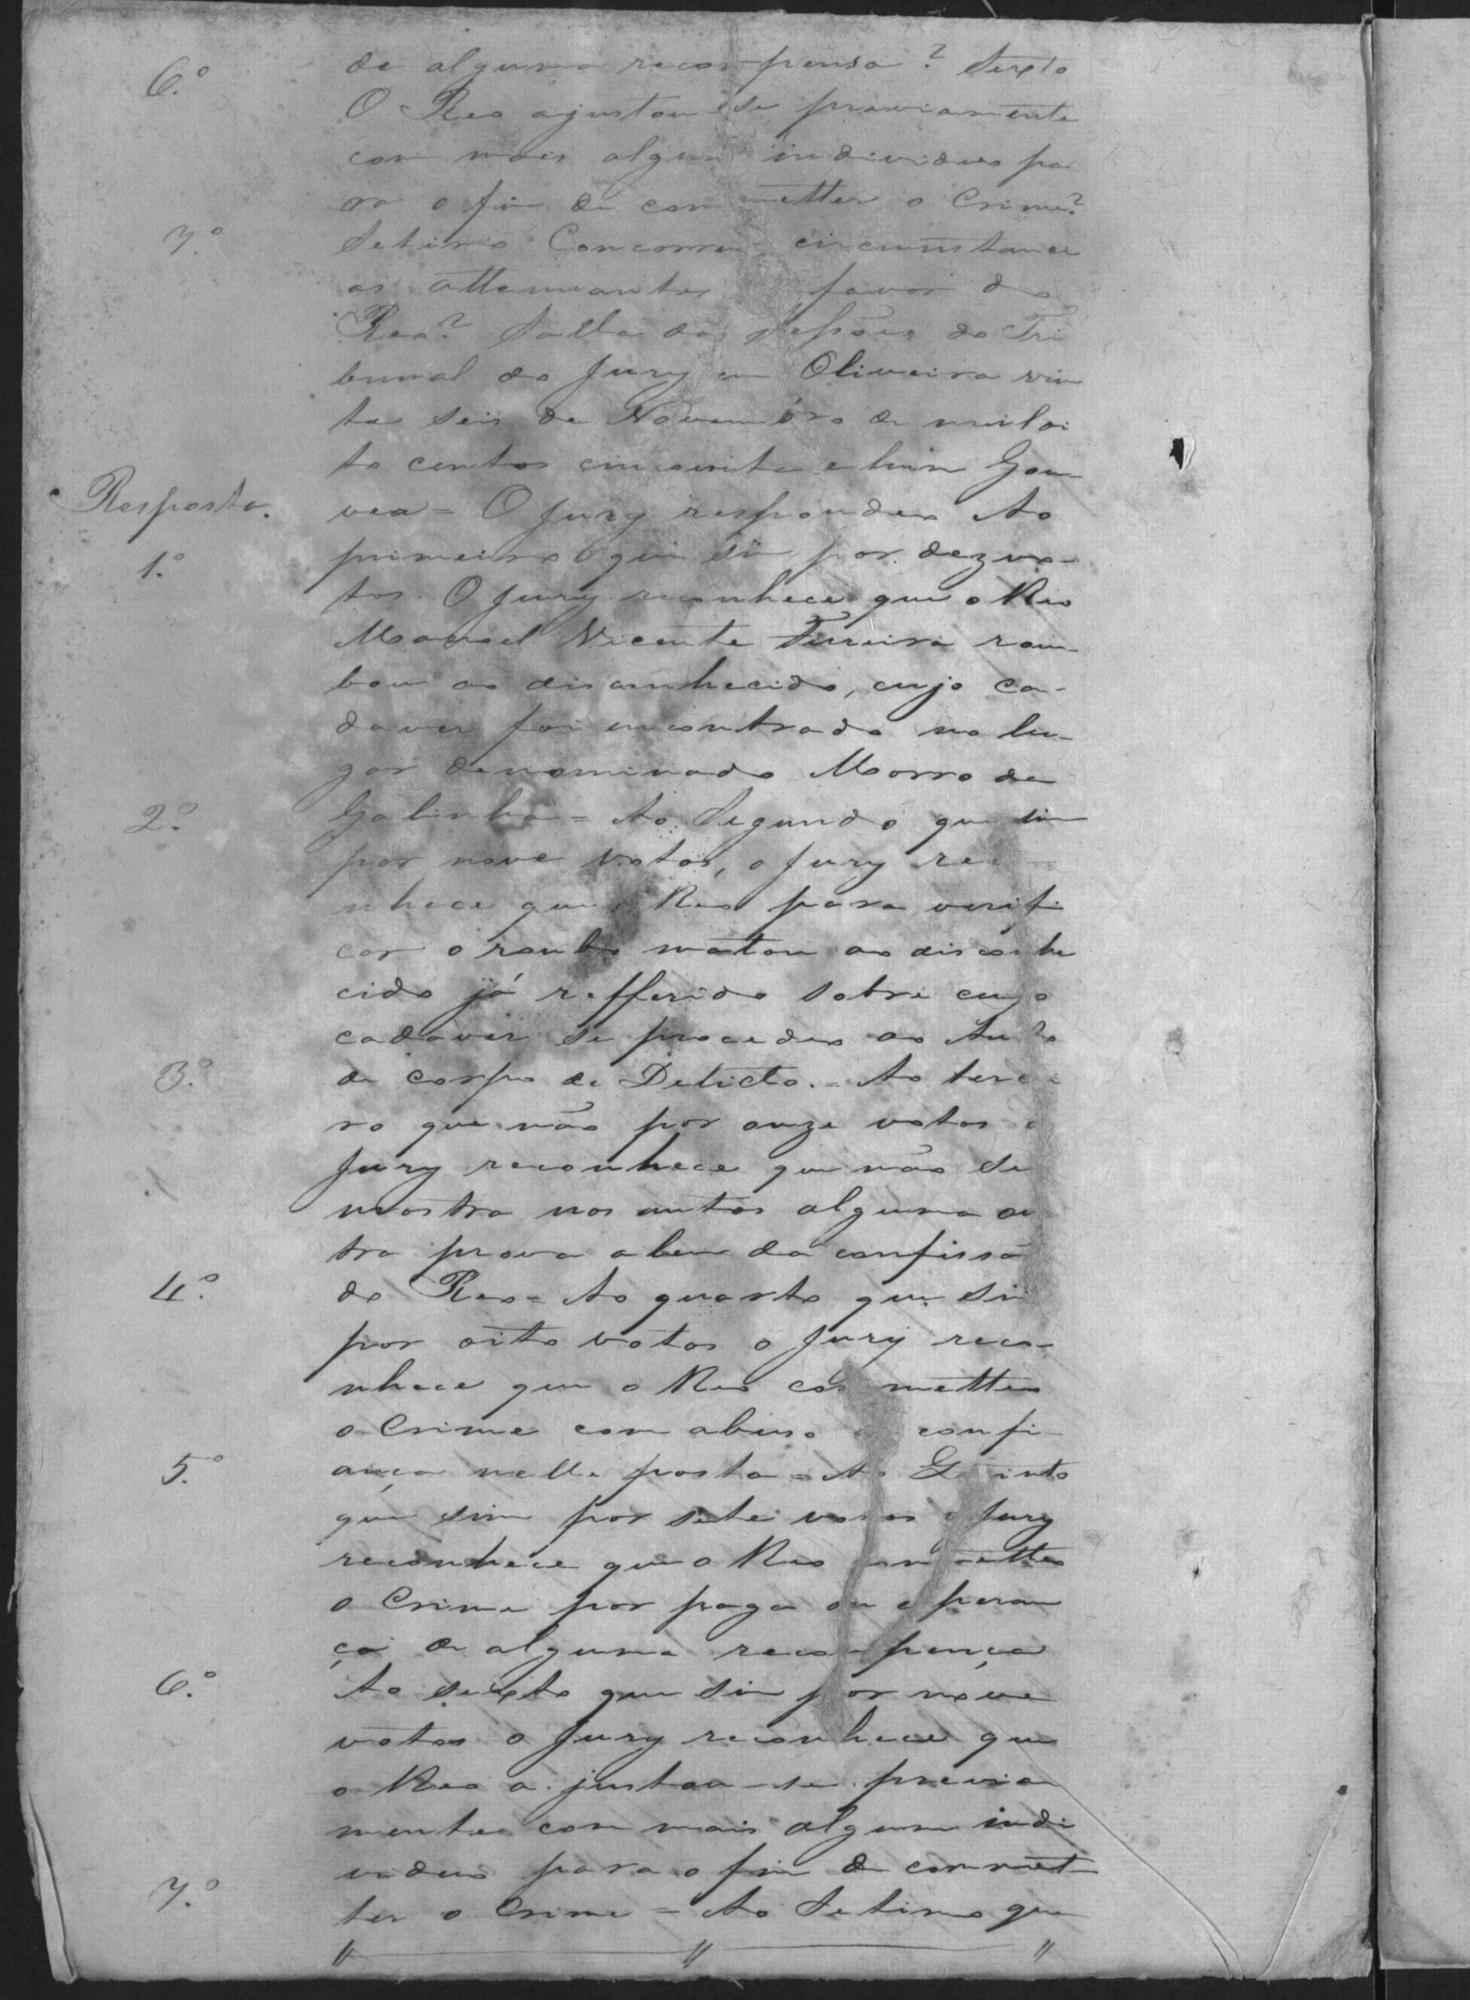 6.º
de alguma recompensa? Sexto
O Reo ajustou-se previamente
com mais algum individuo pa
ra o fim de commetter o Crime?
7.º
Setimo Concorrem circunstanci
as attenuantes favor do
Reo? Salla das sessões do Tri
bunal do Jury em Oliveira vin
te seis de Novembro de mil oi
to centos cincoenta e hum Gou
Resposta.
vea = O Jury respondeo Ao
1.º
primeiro que sim por dez vo-
tos. O Jury reconhece que o Reo
Manoel Vicente Ferreira rou-
bou ao disconhecido, cujo ca-
daver foi encontrado no lu-
gar denominado Morro da
2.º
Galinha = Ao Segundo que sim
por nove votos, o Jury reco
nhece que o Reo para verifi
car o roubo matou ao disconhe
cido já refferido sobre cujo
cadaver se procedeo ao Auto
3.º
de corpo de Delicto. = Ao tercei
ro que não por onze votos o
Jury reconhece que não se
mostra nos autos alguma ou
tra prova alem da confissão
4.º
do Reo = Ao quarto que sim
por oito votos o Jury reco-
nhece que o Reo commetteo
o Crime com abuso confi
5.º
ança nelle posta = Ao Quinto
que sim por sete votos o Jury
reconhece que o Reo commetteo
o Crime por paga ou esperan
ça de alguma recompença
6.º
Ao sexto que sim por nove
votos o Jury reconhece que
o Reo ajustou-se previa
mente com mais algum indi
viduo para o fim de commet
7.º
ter o Crime = Ao Setimo que